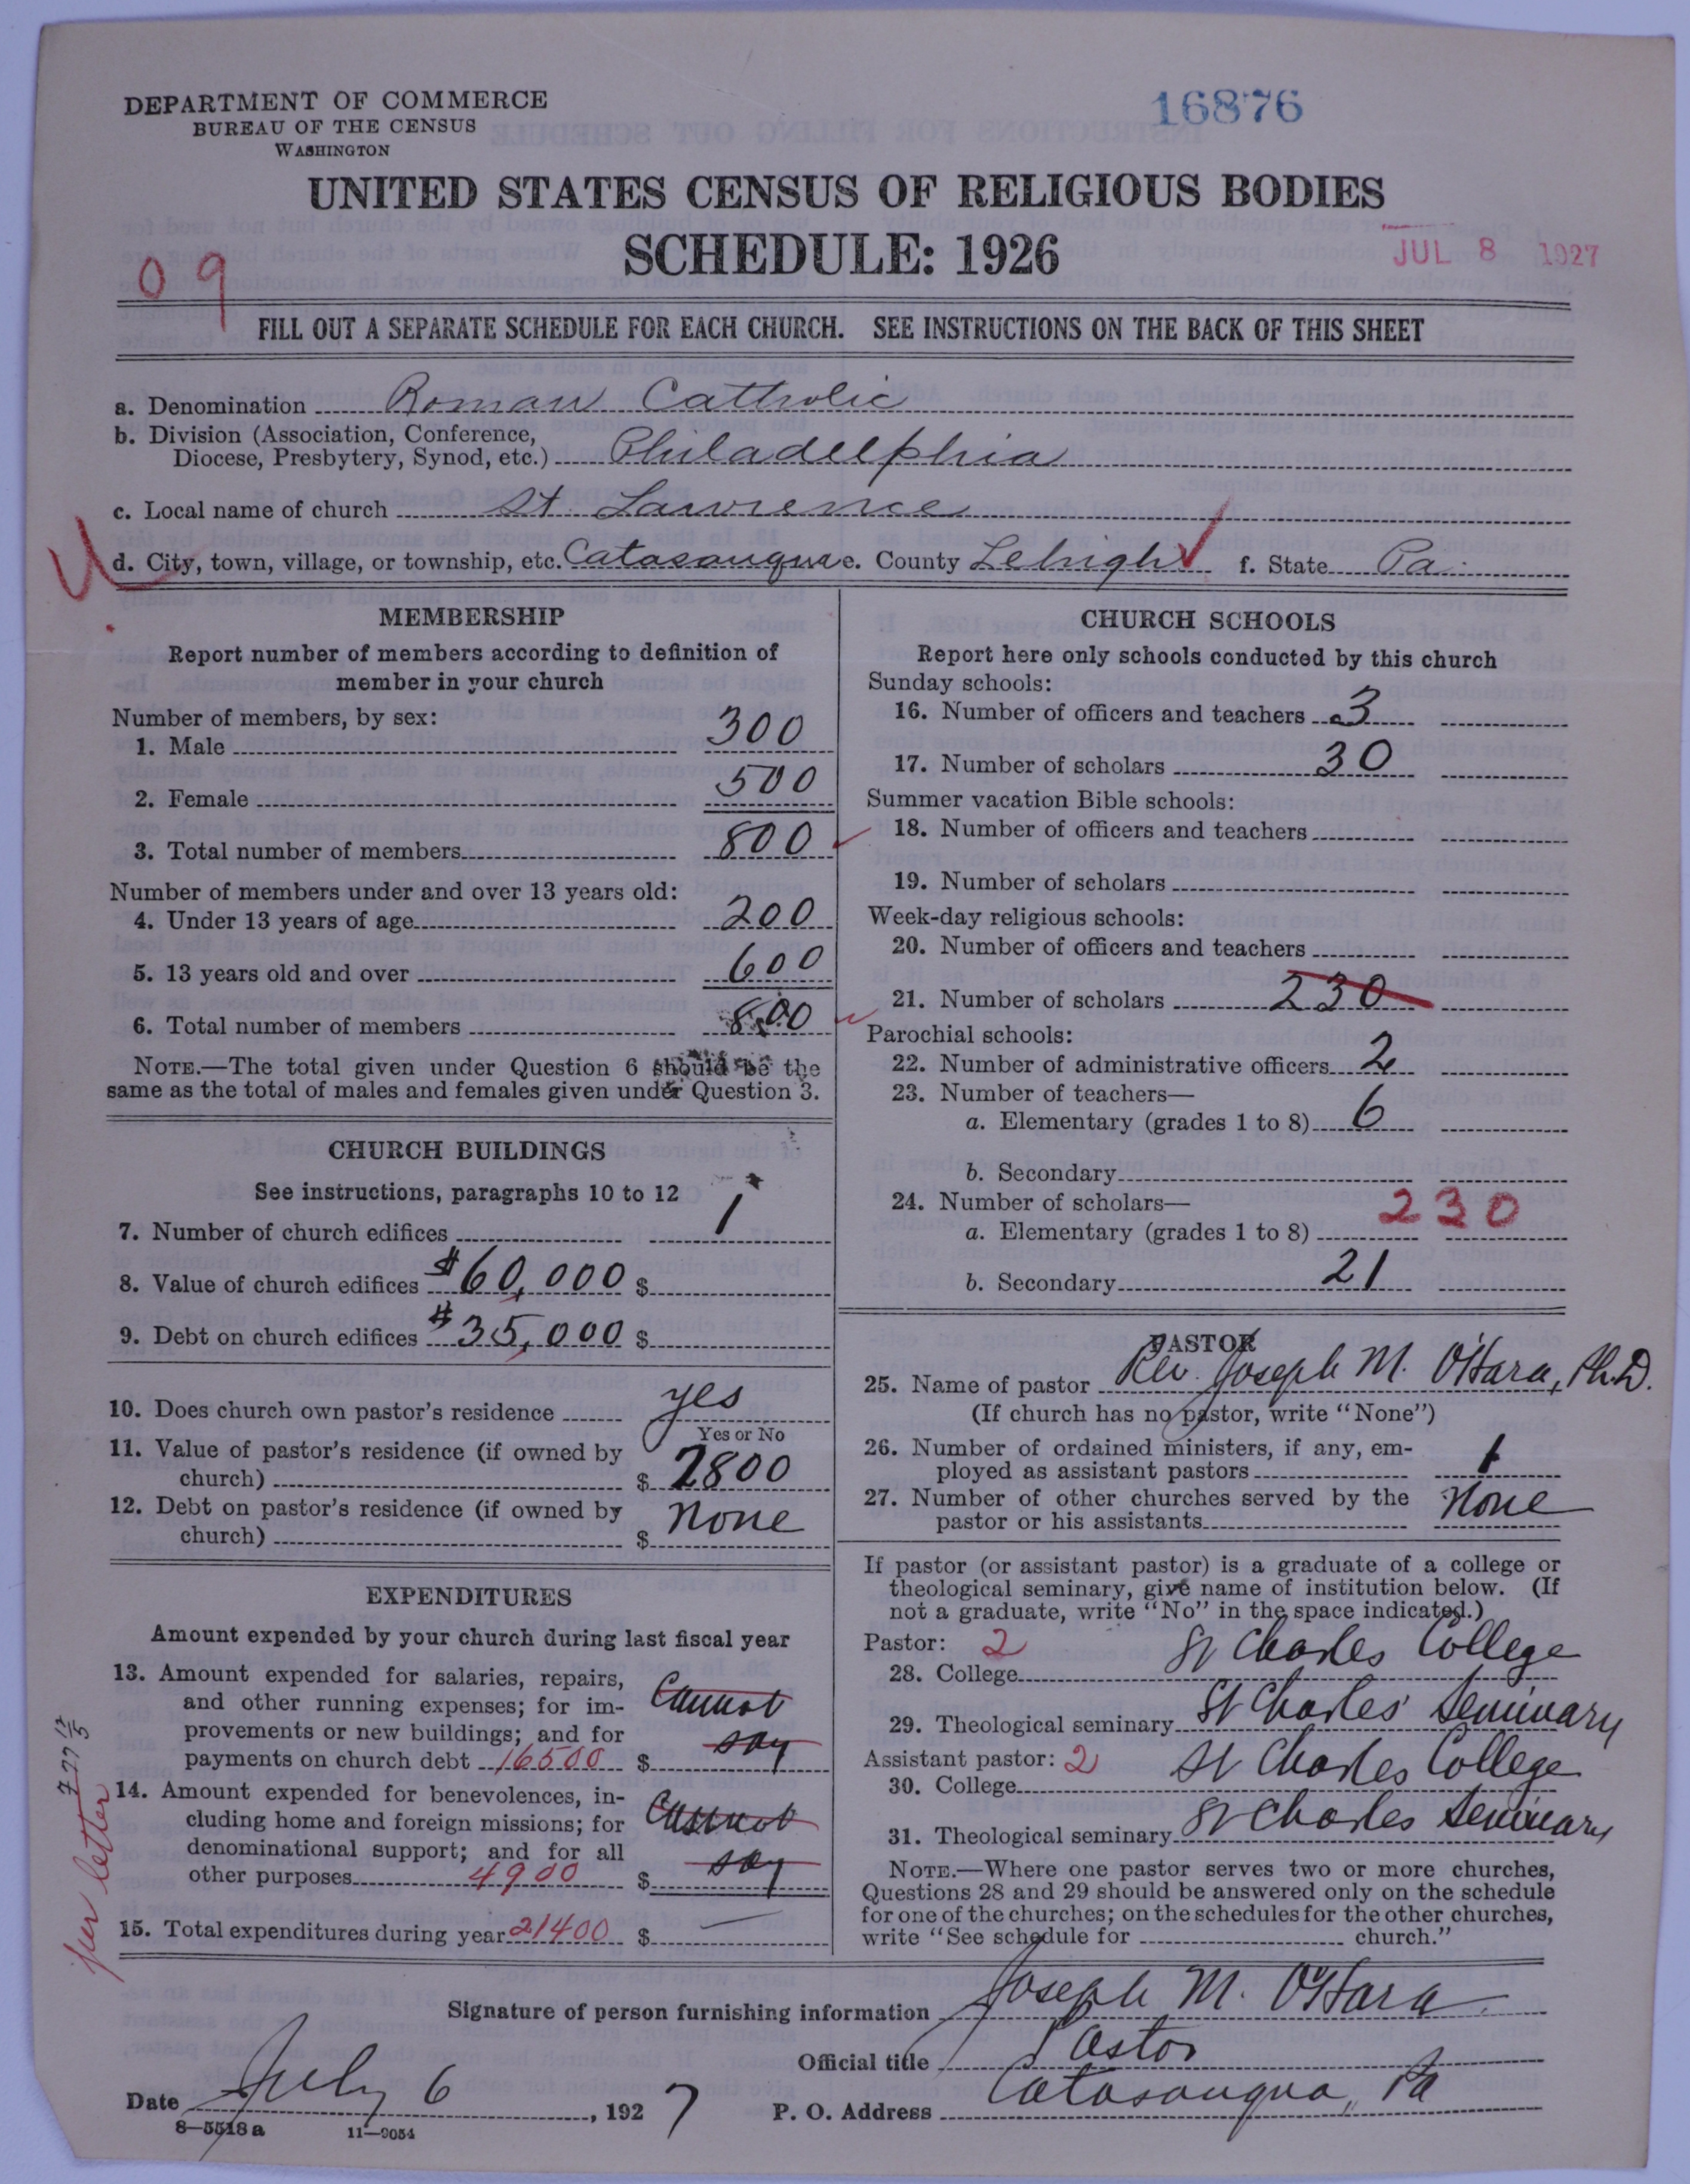 DEPARTMENT OF COMMERCE
BUREAU OF THE CENSUS
WASHINGTON
16876
UNITED STATES CENSUS OF RELIGIOUS BODIES
SCHEDULE: 1926
JUL 8 1927
09
FILL OUT A SEPARATE SCHEDULE FOR EACH CHURCH. SEE INSTRUCTIONS ON THE BACK OF THIS SHEET
a. Denomination Roman Catholic
b. Division (Association, Conference,
Diocese, Presbytery, Synod, etc.) Philadelphia
c. Local name of church St. Lawrence
d. City, town, village, or township, etc. Catasauqua e. County Lehigh f. State Pa.
MEMBERSHIP
Report number of members according to definition of
member in your church
Number of members, by sex:
1. Male 300
2. Female 500
3. Total number of members 800
Number of members under and over 13 years old:
4. Under 13 years of age 200
5. 13 years old and over 600
6. Total number of members 800
NOTE.—The total given under Question 6 should be the
same as the total of males and females given under Question 3.
CHURCH BUILDINGS
See instructions, paragraphs 10 to 12
7. Number of church edifices 1
8. Value of church edifices $60,000 $
9. Debt on church edifices $35,000 $
10. Does church own pastor's residence yes
Yes or No
11. Value of pastor's residence (if owned by
church) $ 2800
12. Debt on pastor's residence (if owned by
church) $ None
EXPENDITURES
Amount expended by your church during last fiscal year
13. Amount expended for salaries, repairs,
and other running expenses; for im-
provements or new buildings; and for
payments on church debt 16500 $ Cannot say
14. Amount expended for benevolences, in-
cluding home and foreign missions; for
denominational support; and for all
other purposes 4900 $ Cannot say
15. Total expenditures during year 21400 $ —
per letter
CHURCH SCHOOLS
Report here only schools conducted by this church
Sunday schools:
16. Number of officers and teachers 3
17. Number of scholars 30
Summer vacation Bible schools:
18. Number of officers and teachers
19. Number of scholars
Week-day religious schools:
20. Number of officers and teachers
21. Number of scholars 230
Parochial schools:
22. Number of administrative officers 2
23. Number of teachers—
a. Elementary (grades 1 to 8) 6
b. Secondary
24. Number of scholars—
a. Elementary (grades 1 to 8) 230
b. Secondary 21
PASTOR
25. Name of pastor Rev. Joseph M. O'Hara, Ph.D.
(If church has no pastor, write "None")
26. Number of ordained ministers, if any, em-
ployed as assistant pastors 1
27. Number of other churches served by the
pastor or his assistants None
If pastor (or assistant pastor) is a graduate of a college or
theological seminary, give name of institution below. (If
not a graduate, write "No" in the space indicated.)
Pastor: 2
28. College St Charles College
29. Theological seminary St Charles' Seminary
Assistant pastor: 2
30. College St Charles College
31. Theological seminary St Charles Seminary
NOTE.—Where one pastor serves two or more churches,
Questions 28 and 29 should be answered only on the schedule
for one of the churches; on the schedules for the other churches,
write "See schedule for church."
Signature of person furnishing information Joseph M. O'Hara.
Official title Pastor
Date July 6, 1927 P. O. Address Catasauqua, Pa
8—5518 a 11—9054